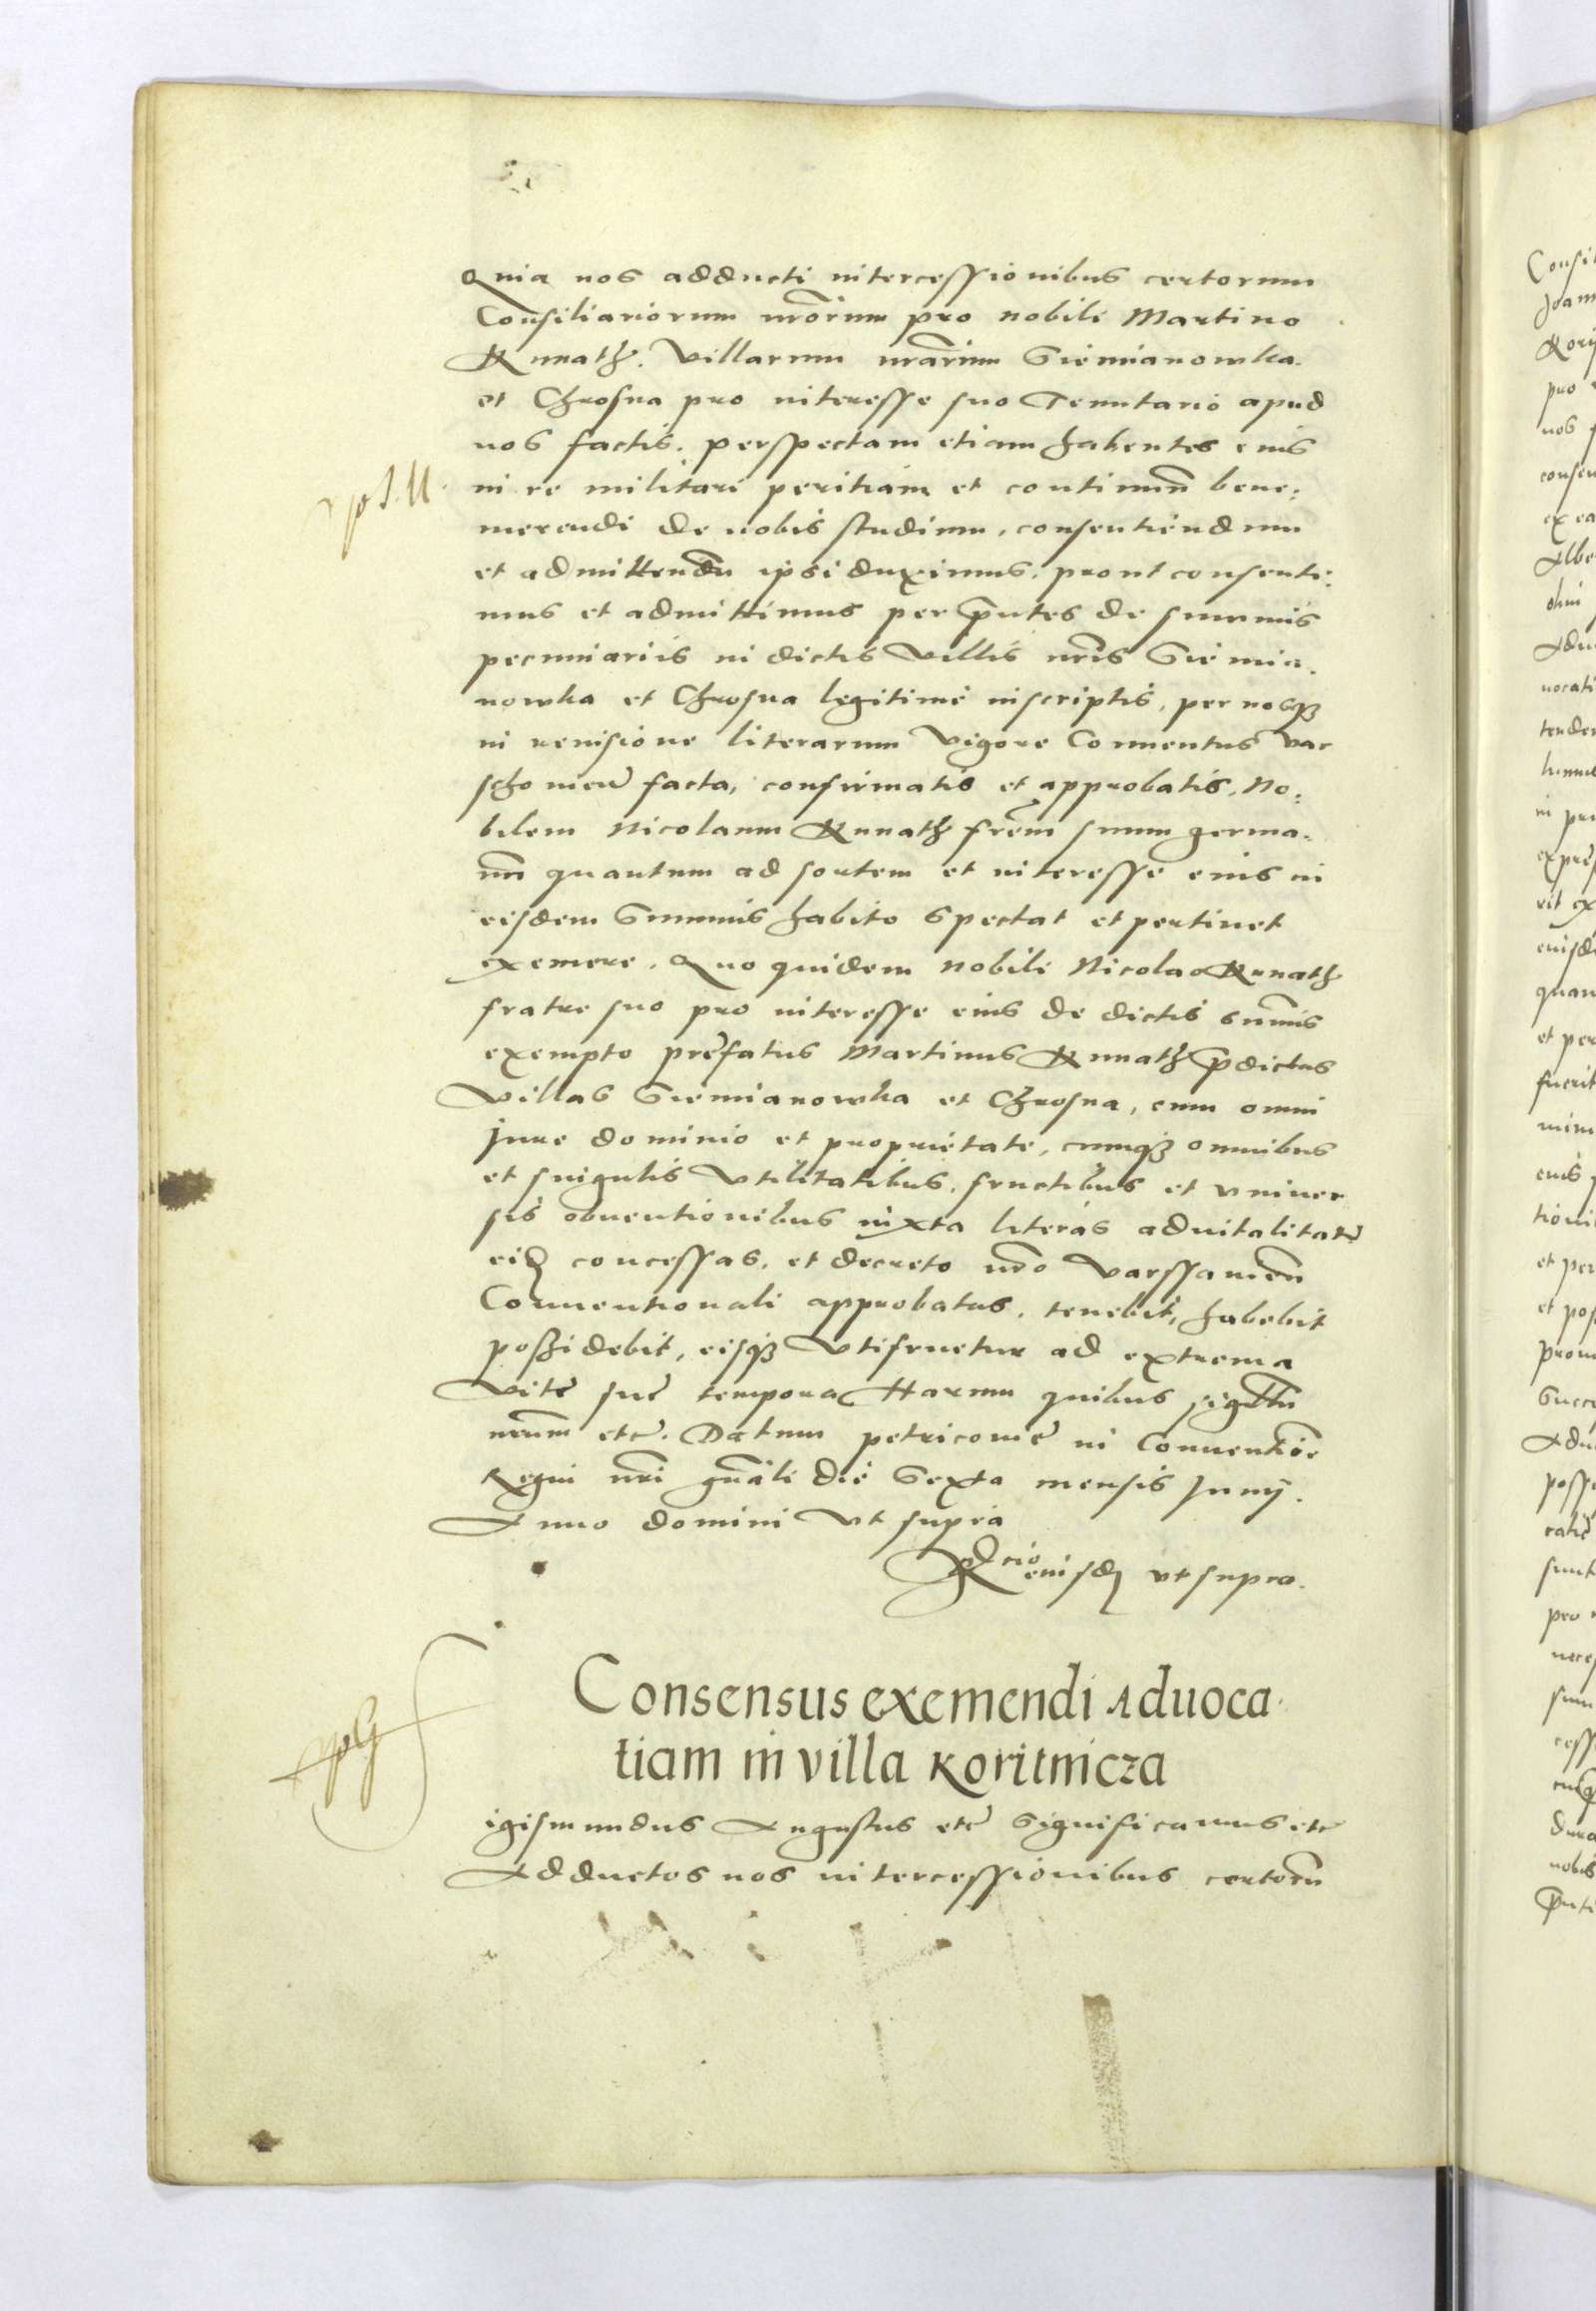 Quia nos adducti intercessionibus certorum
Consiliariorum nr̄orum pro nobili Martino
Kunath. Villarum nr̄arum Siemianowka
et Chrosna pro interesse suo Tenutario apud
nos factis. perspectam etiam habentes eius
in re militari peritiam et continuū bene:
merendi de nobis studium, consentiendum
et admittendū ipsi duximus. prout consenti:
mus et admittimus per pn̄tes de summis
pecuniariis in dictis Villis nr̄is Siemia.
nowka et Chrosna legitime inscriptis, per nosqȝ
in reuisione literarum Vigore Conuentus Var
schouieñ facta, confirmatis et approbatis, No:
bilem Nicolaum Kunath fr̄em suum germa.
nū quantum ad sortem et interesse eius in
eisdem Summis habito spectat et pertinet
exemere. Quo quidem nobili Nicolao Kunath
fratre suo pro interesse eius de dictis sum̄is
exempto prefatus Martinus Kunath p̄dictas
Villas Siemianowka et Chrosna, cum omni
Jure dominio et proprietate, cumqȝ omnibus
et singulis Vtilitatibus, fructibus et vniuer
sis obuentionibus iuxta literas aduitalitatē
eidē concessas, et decreto nr̄o Varssauieñ
Conuentionali approbatas, tenebit, habebit
possidebit, eisqȝ Vtifruetur ad extrema
Vite sue tempora Harum quibus sigillū
nrūm etc̄. Datum petricouie in Conuentioē
Regni nr̄i gn̄ali die Sexta mensis Junij.
Anno domini Vt supra
Rel̄cio eiusdē vt supra.
Consensus exemendi Aduoca
tiam in villa Koritnicza
igismundus Augustus etc̄ Significamus etc̄
Adductos nos intercessionibus certorū